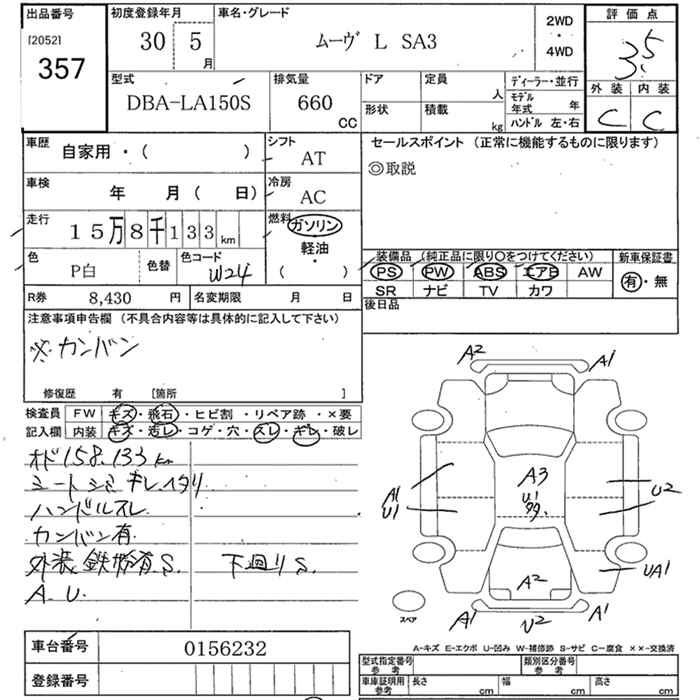 出品番号
[2052]
357
初度登録年月
30 5
月
車名・グレード
ムーヴ L SA3
2WD
・
4WD
評価点
3.5
外装 内装
C C
型式
DBA-LA150S
排気量
660
CC
ドア
形状
定員
人
積載
kg
ディーラー・並行
モデル
年式 年
ハンドル 左・右
車歴
自家用・( )
シフト
AT
車検
年 月( 日)
冷房
AC
走行
15万8千133 km
燃料
ガソリン
軽油
・
( )
色
P白
色替
色コード
W24
R券 8,430 円
名変期限 月 日
セールスポイント (正常に機能するものに限ります)
◎取説
装備品 (純正品に限り○をつけてください)
PS PW ABS エアB AW
SR ナビ TV カワ
新車保証書
有・無
後日品
注意事項申告欄 (不具合内容等は具体的に記入して下さい)
※カンバン
修復歴 有 [箇所 ]
検査員
記入欄
FW キズ・飛石・ヒビ割・リペア跡・×要
内装 キズ・汚レ・コゲ・穴・スレ・キレ・破レ
オド158.133km
シートシミ キレ.ヘタリ
ハンドルスレ
カンバン有
外装鉄粉有.S. 下廻りS
A.U.
A2 A1
A3
U1
99.
A1
U1
U2
UA1
A2
A1 U2 A1
スペア
A-キズ E-エクボ U-凹み W-補修跡 S-サビ C-腐食 ××-交換済
車台番号 0156232
登録番号
型式指定番号
参考
類別区分番号
参考
車庫証明用
参考
長さ cm 幅 cm 高さ cm